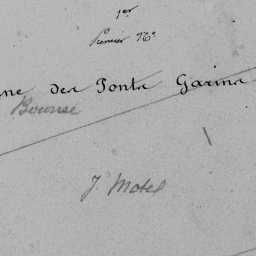 1er
Premier
ne des Ponts Garins
Bourse
J. Motel